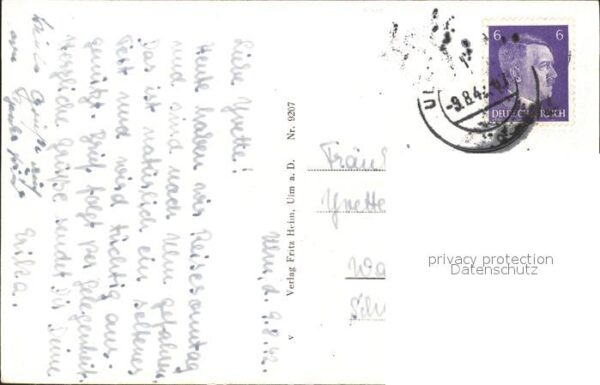 Ulm, d. 9.8.42.
Liebe Yvette!
Heute haben wir Reisesonntag
und sind nach Ulm gefahren.
Das ist natürlich ein seltenes
Fest und wird tüchtig aus-
genützt. Brief folgt bei Gelegenheit.
Herzliche Grüße sendet Dir Deine
Erika.
Grüße
Verlag Fritz Heim, Ulm a. D. Nr. 9207
v
6
6
DEUTSCHES REICH
-9.8.42
Fräul
Yvette
Wa
privacy protection
Datenschutz